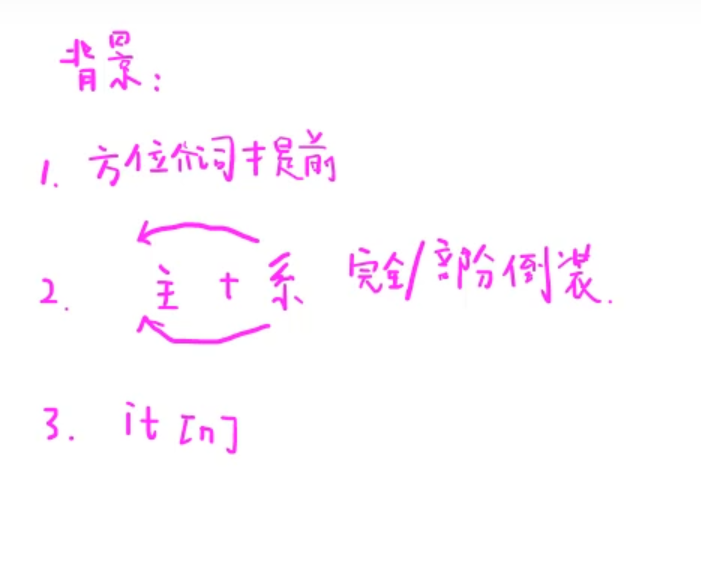 背景:
1. 方位介词提前
2. 主 + 系 完全/部份倒装.
3. it [n]